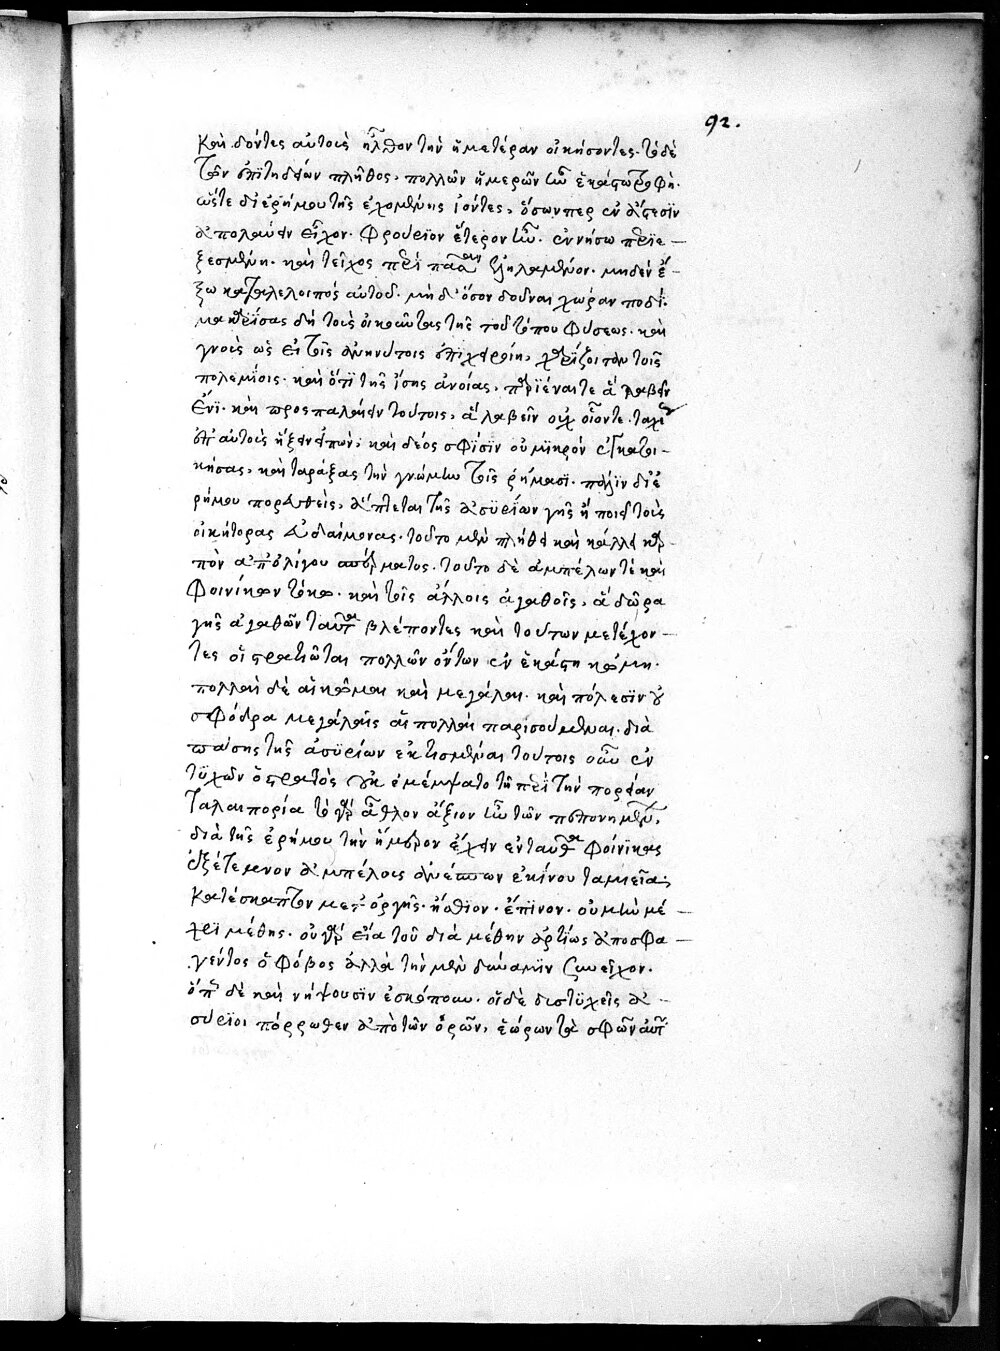 92.
καὶ δόντες αὐτοὺς ἦλθον τὴν ἡμετέραν οἰκήσοντες. τὸ δὲ
τῶν ἐπιτηδείων πλῆθος, πολλῶν ἡμερῶν ἦν ἑκάστω τροφὴ.
ὥστε δι ἐρήμου τῆς ἐχομένης ἰόντες, ὅσωνπερ ἐν ἄστεσϊν
ἀπολαύειν εἶχον. φρούριον ἕτερον ἦν. ἐν νήσω πεϊε –
ξεσμένη. καὶ τεῖχος περὶ πᾶσαν ἐληλαμένον. μηδὲν ἔ –
ξω καταλελοιπὸς αὐτοῦ. μὴ δ' ὅσον δοῦναι χώραν ποδί.
μαθὼν δὴ τοὺς οἰκοῦντας τῆς τοῦ τόπου φύσεως. καὶ
γνοὺς ὡς εἰ τοῖς ἀνηνύτοις ἐπιχειροίη, χαρίζοιτο ἂν τοῖς
πολεμίοις. καὶ ὅτι τῆς ἴσης ἀνοίας, παριέναι τε ἃ λαβεῖν
ἔνϊ. καὶ προσπαλαίειν τούτοις, ἃ λαβεῖν οὐχ οἷόν τε. ταχὺ
ἐπ' αὐτοὺς ἥξειν εἰπὼν, καὶ δέος σφίσϊν οὐ μϊκρὸν ἐγκατοι –
κήσας, καὶ ταράξας τὴν γνώμην τοῖς ῥήμασϊ. πάλϊν δι ἐ
ρήμου πορευθεὶς, ἅπτεται τῆς ἀσϋρίων γῆς ἣ ποιεῖ τοὺς
οἰκήτορας εὐδαίμονας. τοῦτο μὲν πλήθει καὶ κάλλει καρ –
πὸν ἀπ' ὀλίγου σπέρματος. τοῦτο δὲ ἀμπέλων τε καὶ
φοινίκων τόκω. καὶ τοῖς ἄλλοις ἀγαθοῖς, ἃ δῶρα
γῆς ἀγαθῶν ταῦτα βλέποντες καὶ τούτων μετέχον –
τες οἱ στρατιῶται πολλῶν ὄντων ἐν ἑκάστη κώμη.
πολλαὶ δὲ αἱ κῶμαι καὶ μεγάλαι. καὶ πόλεσϊν οὐ
σφόδρα μεγάλαις αἱ πολλαὶ παρισούμεναι. διὰ
πάσης τῆς ἀσϋρίων ἐκτισμέναι τούτοις οὖν ἐν
τϋχὼν ὁ στρατὸς οὐκ ἐμέμψατο τῆ περὶ τὴν πορείαν
ταλαιπορία τὸ γὰρ ἆθλον ἄξιον ἦν τῶν πεπονημένων,
διὰ τῆς ἐρήμου τὴν ἥμερον ἔχειν ἐνταῦθα φοίνικας
ἐξέτεμνον ἀμπέλους ἀνέσπων ἐκίνουν ταμιεῖα,
κατέσκαπτον μετ' ὀργῆς. ἤσθιον. ἔπϊνον. οὐ μὴν μέ –
χρϊ μέθης. οὐ γὰρ εἴα τοῦ διὰ μέθην ἀρτίως ἀποσφα –
γέντος ὁ φόβος ἀλλὰ τὴν μὲν δύναμϊν συνεῖχον.
ὅπερ δὲ καὶ νήφουσϊν ἐσκόπουν. οἱ δὲ δυστϋχεῖς ἀσ –
σύρϊοι πόρρωθεν ἀπὸ τῶν ὀρῶν, ἑώρων τὰ σφῶν αὐτ